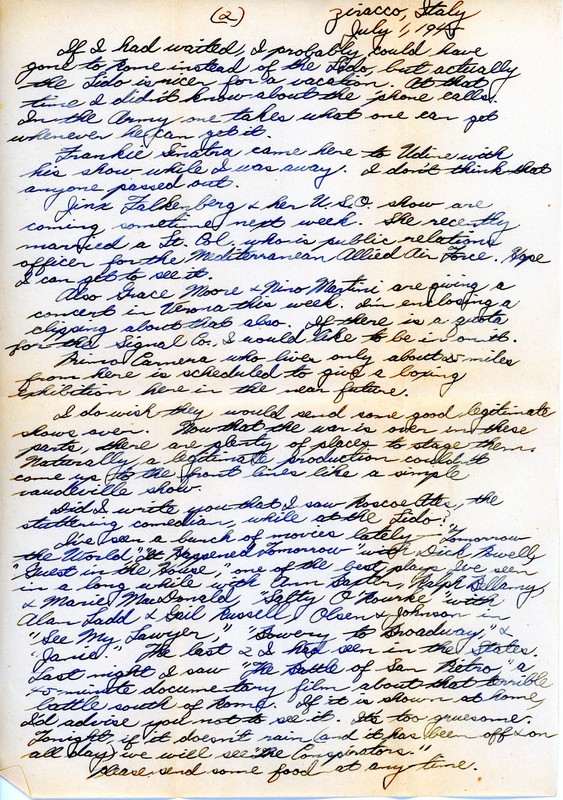 (2)
Ziracco, Italy
July 1, 1945
If I had waited, I probably could have
gone to Rome instead of the Lido, but actually
the Lido is nicer for a vacation. At that
time I didn't know about the 'phone calls.
In the Army one takes what one can get
whenever he can get it.
Frankie Sinatra came here to Udine with
his show while I was away. I don't think that
anyone passed out.
Jinx Falkenberg & her U.S.O. show are
coming sometime next week. She recently
married a Lt. Col. who is public relations
officer for the Mediterranean Allied Air Force. Hope
I can get to see it.
Also Grace Moore & Nino Martini are giving a
concert in Verona this week. I'm enclosing a
clipping about that also. If there is a quota
for the Signal Co. I would like to be in on it.
Primo Carnera who lives only about miles
from here is scheduled to give a boxing
exhibition here in the near future.
I do wish they would send some good legitimate
shows over. Now that the war is over in these
parts, there are plenty of places to stage them.
Naturally, a legitimate production couldn't
come up to the front lines like a simple
vaudeville show.
Did I write you that I saw Roscoe Ates, the
stuttering comedian, while at the Lido?
I've seen a bunch of movies lately - "Tomorrow
the World," "It Happened Tomorrow" with Dick Powell,
"Guest in the House," one of the best plays I've seen
in a long while with Ann Baxter, Ralph Bellamy,
& Marie MacDonald, "Salty O'Rourke" with
Alan Ladd & Gail Russell, Olsen & Johnson in
"See My Lawyer," "Bowery to Broadway," &
"Janie." The last 2 I had seen in the States.
Last night I saw "The Battle of San Pietro," a
minute documentary film about that terrible
battle south of Rome. If it is shown at home,
I'd advise you not to see it. Its too gruesome.
Tonight, if it doesn't rain (and it has been off & on
all day) we will see "The Conspirators."
Please send some food at any time.